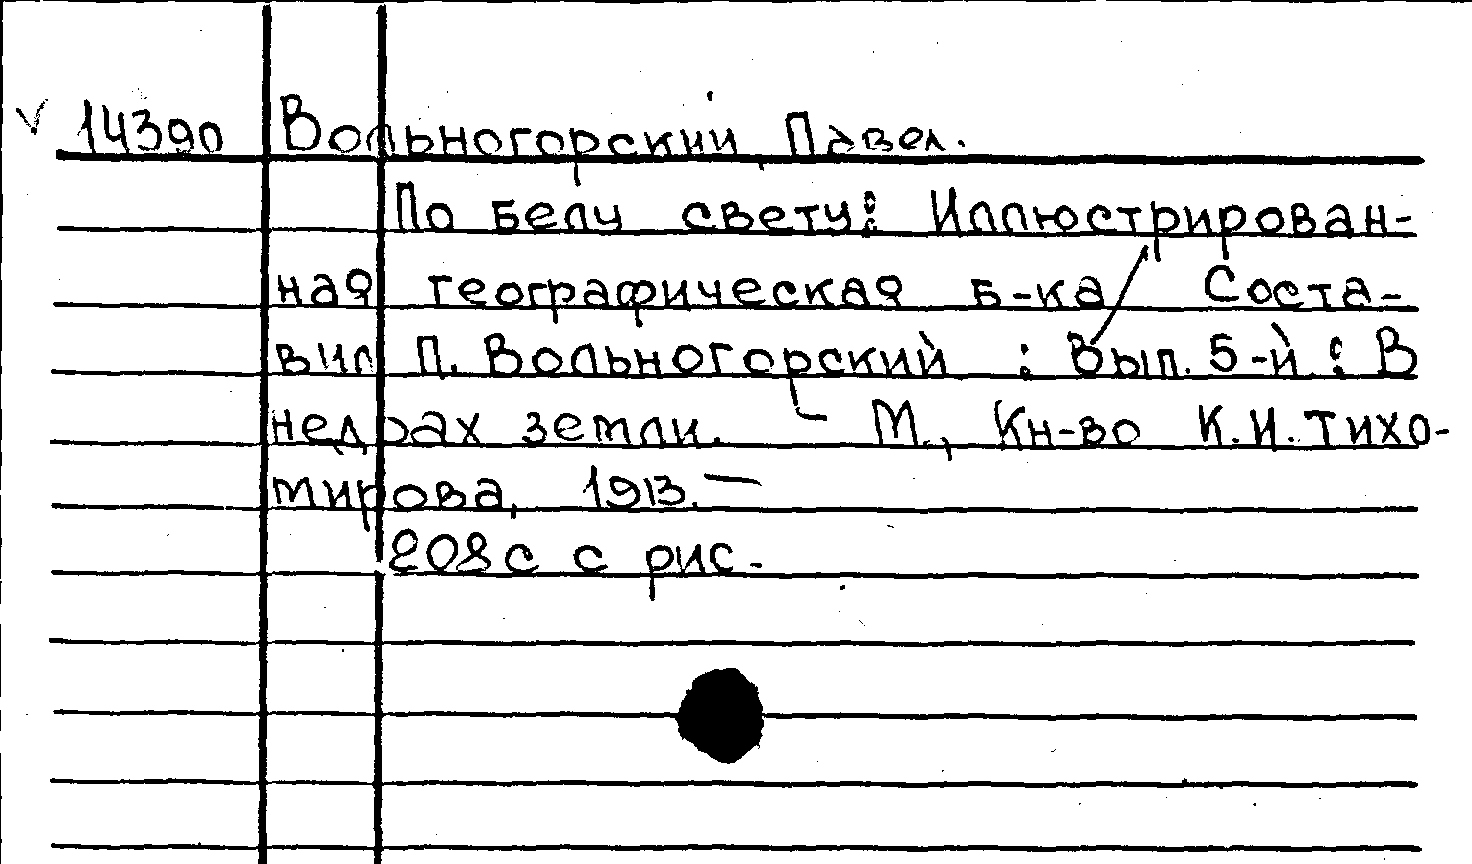 V 14390 Вольногорский, Павел.
По белу свету: Иллюстрирован-
ная географическая б-ка / Соста-
вил П. Вольногорский : Вып. 5-й : В
недрах земли. – М., Кн-во К.И. Тихо-
мирова, 1913. –
208 с с рис.